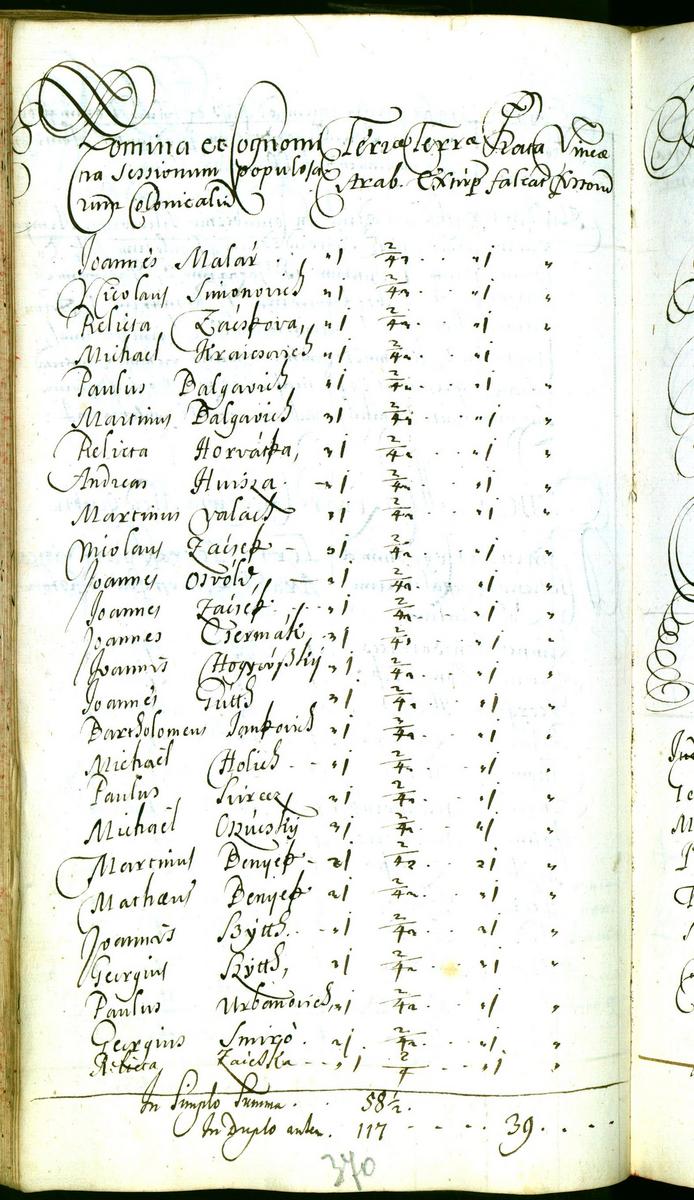 Nomina et Cognomi Terræ Terræ Prata Vineæ
na Sessionum populosa Arab. Extirp falcat
rum Colonicaliu
Joannes Malár . „1 2/4 . . „1 „
Nicolaus Simonovich „1 2/4 . . „1 „
Relicta Zaiskova, „1 2/4 . . „1 „
Michael Kraicsovich „1 2/4 . . „1 „
Paulus Balgavich „1 2/4 . . „1 „
Martinus Balgavich „1 2/4 . . „1 „
Relicta Horvátka, „1 2/4 . . „1 „
Andreas Huisza - „1 2/4 . . „1 „
Martinus Valach „1 2/4 . . „1 „
Nicolaus Zaisek - „1 2/4 . . „1 „
Joannes Osvold, „1 2/4 . . „1 „
Joannes Zaisek . . „1 2/4 . . „1 „
Joannes Csermák, „1 2/4 . . „1 „
Joannes „1 2/4 . . „1 „
Joannes Gútth „1 2/4 . . „1 „
Bartholomeus Jankovich „1 2/4 . . „1 „
Michael Holich . . „1 2/4 . . „1 „
Paulus „1 2/4 . . „1 „
Michael „1 2/4 . . „1 „
Martinus Benyek - „1 2/4 . . „1 „
Mathæus Benyek „1 2/4 . . „1 „
Joannes Bytth . . „1 2/4 . . „1 „
Georgius Bytth, „1 2/4 . . „1 „
Paulus Urbanovich, „1 2/4 . . „1 „
Georgius Smigó . „1 2/4 . . „1 „
Relicta Zaiczka - - „1 2/4 . . „1 „
In Simplo Summa . . 58 1/2.
In Duplo autem . 117 - - - - 39 . - - -
370